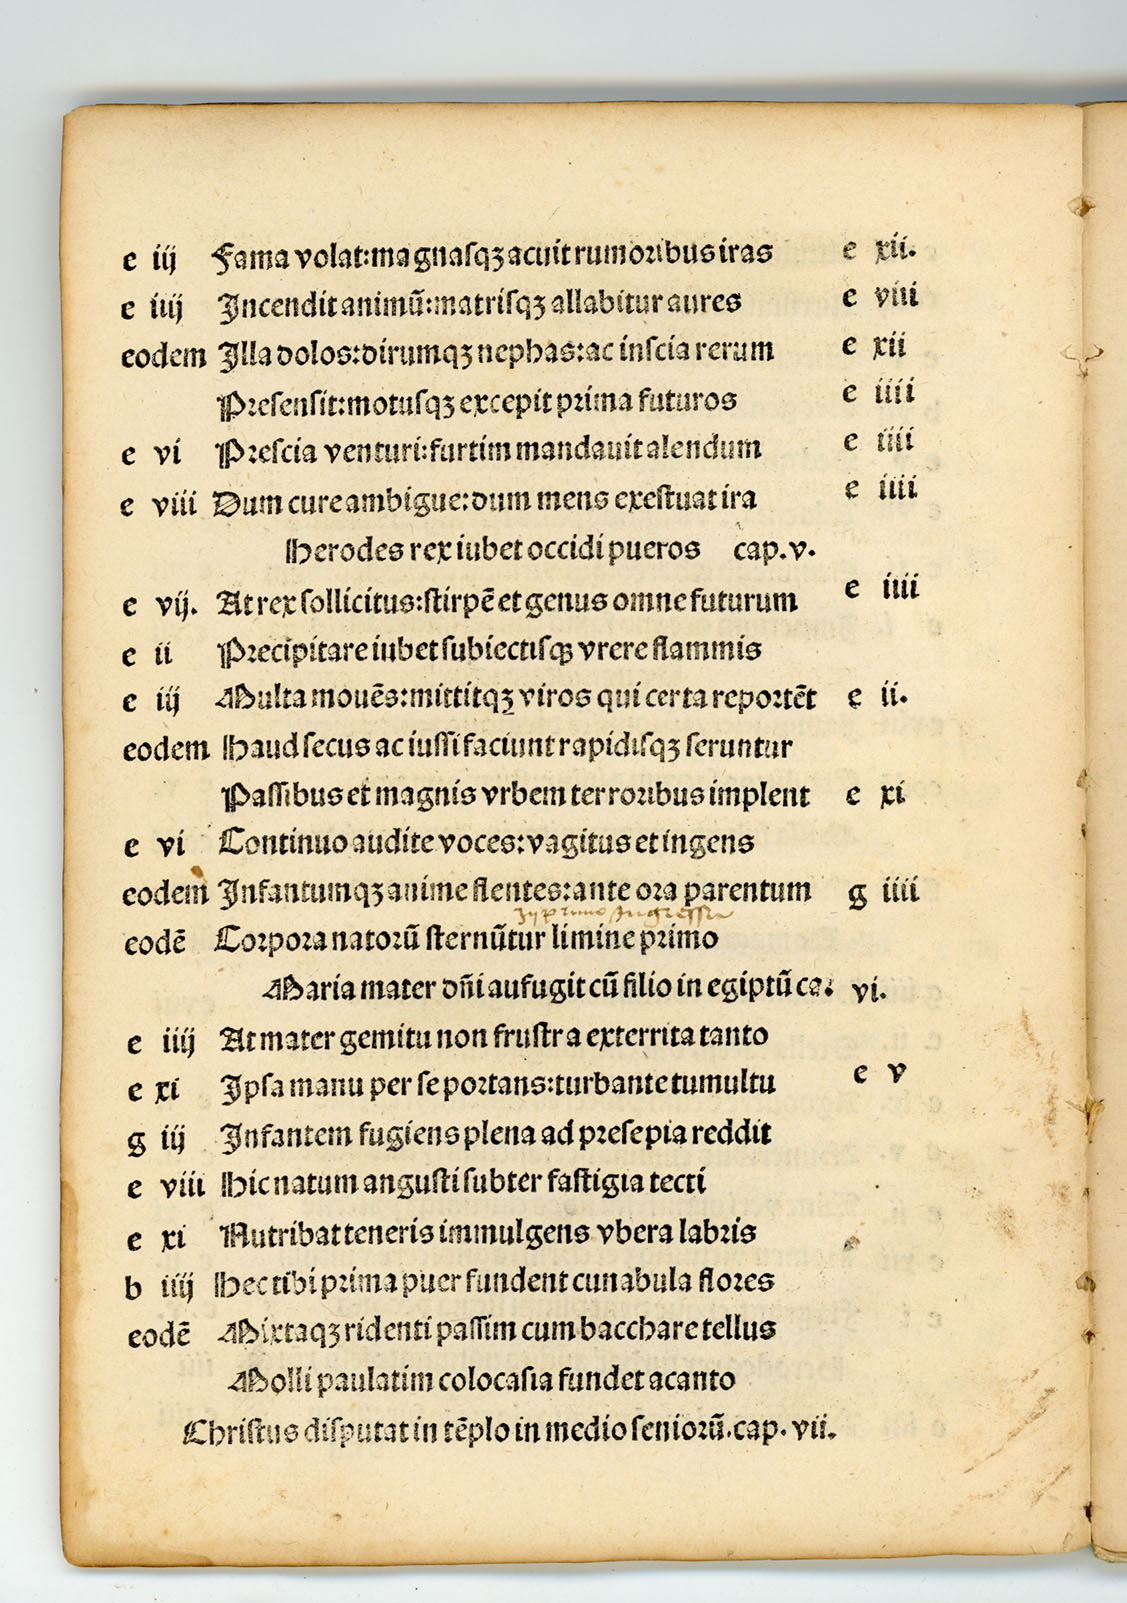 e iij Fama volat:magnasqꝫ acuit rumoribus iras e xii.
e iiij Incendit animū:matrisqꝫ allabitur aures e viii
eodem Illa dolos:dirumqꝫ nephas:ac inscia rerum e xii
Presensit:motusqꝫ excepit prima futuros e iiii
e vi Prescia venturi:furtim mandauit alendum e iiii
e viii Dum cure ambigue:dum mens exestuat ira e iiii
Herodes rex iubet occidi pueros cap.v.
e vij. At rex sollicitus:stirpē et genus omne futurum e iiii
e ii Precipitare iubet subiectisqꝫ vrere flammis
e iij Multa mouēs:mittitqꝫ viros qui certa reportēt e ii.
eodem Haud secus ac iussi faciunt rapidisqꝫ feruntur
Passibus et magnis vrbem terroribus implent e xi
e vi Continuo audite voces:vagitus et ingens
eodem Infantumqꝫ anime flentes:ante ora parentum g iiii
in primo ingressu
eodē Corpora natorū sternūtur limine primo
Maria mater dñi aufugit cū filio in egiptū ca. vi.
e iiij At mater gemitu non frustra exterrita tanto
e xi Ipsa manu per se portans:turbante tumultu e v
g iij Infantem fugiens plena ad presepia reddit
e viii Hic natum angusti subter fastigia tecti
e xi Nutribat teneris immulgens vbera labris
b iiij Hec tibi prima puer fundent cunabula flores
eodē Mixtaqꝫ ridenti passim cum bacchare tellus
Molli paulatim colocasia fundet acanto
Christus disputat in tēplo in medio seniorū.cap. vii.